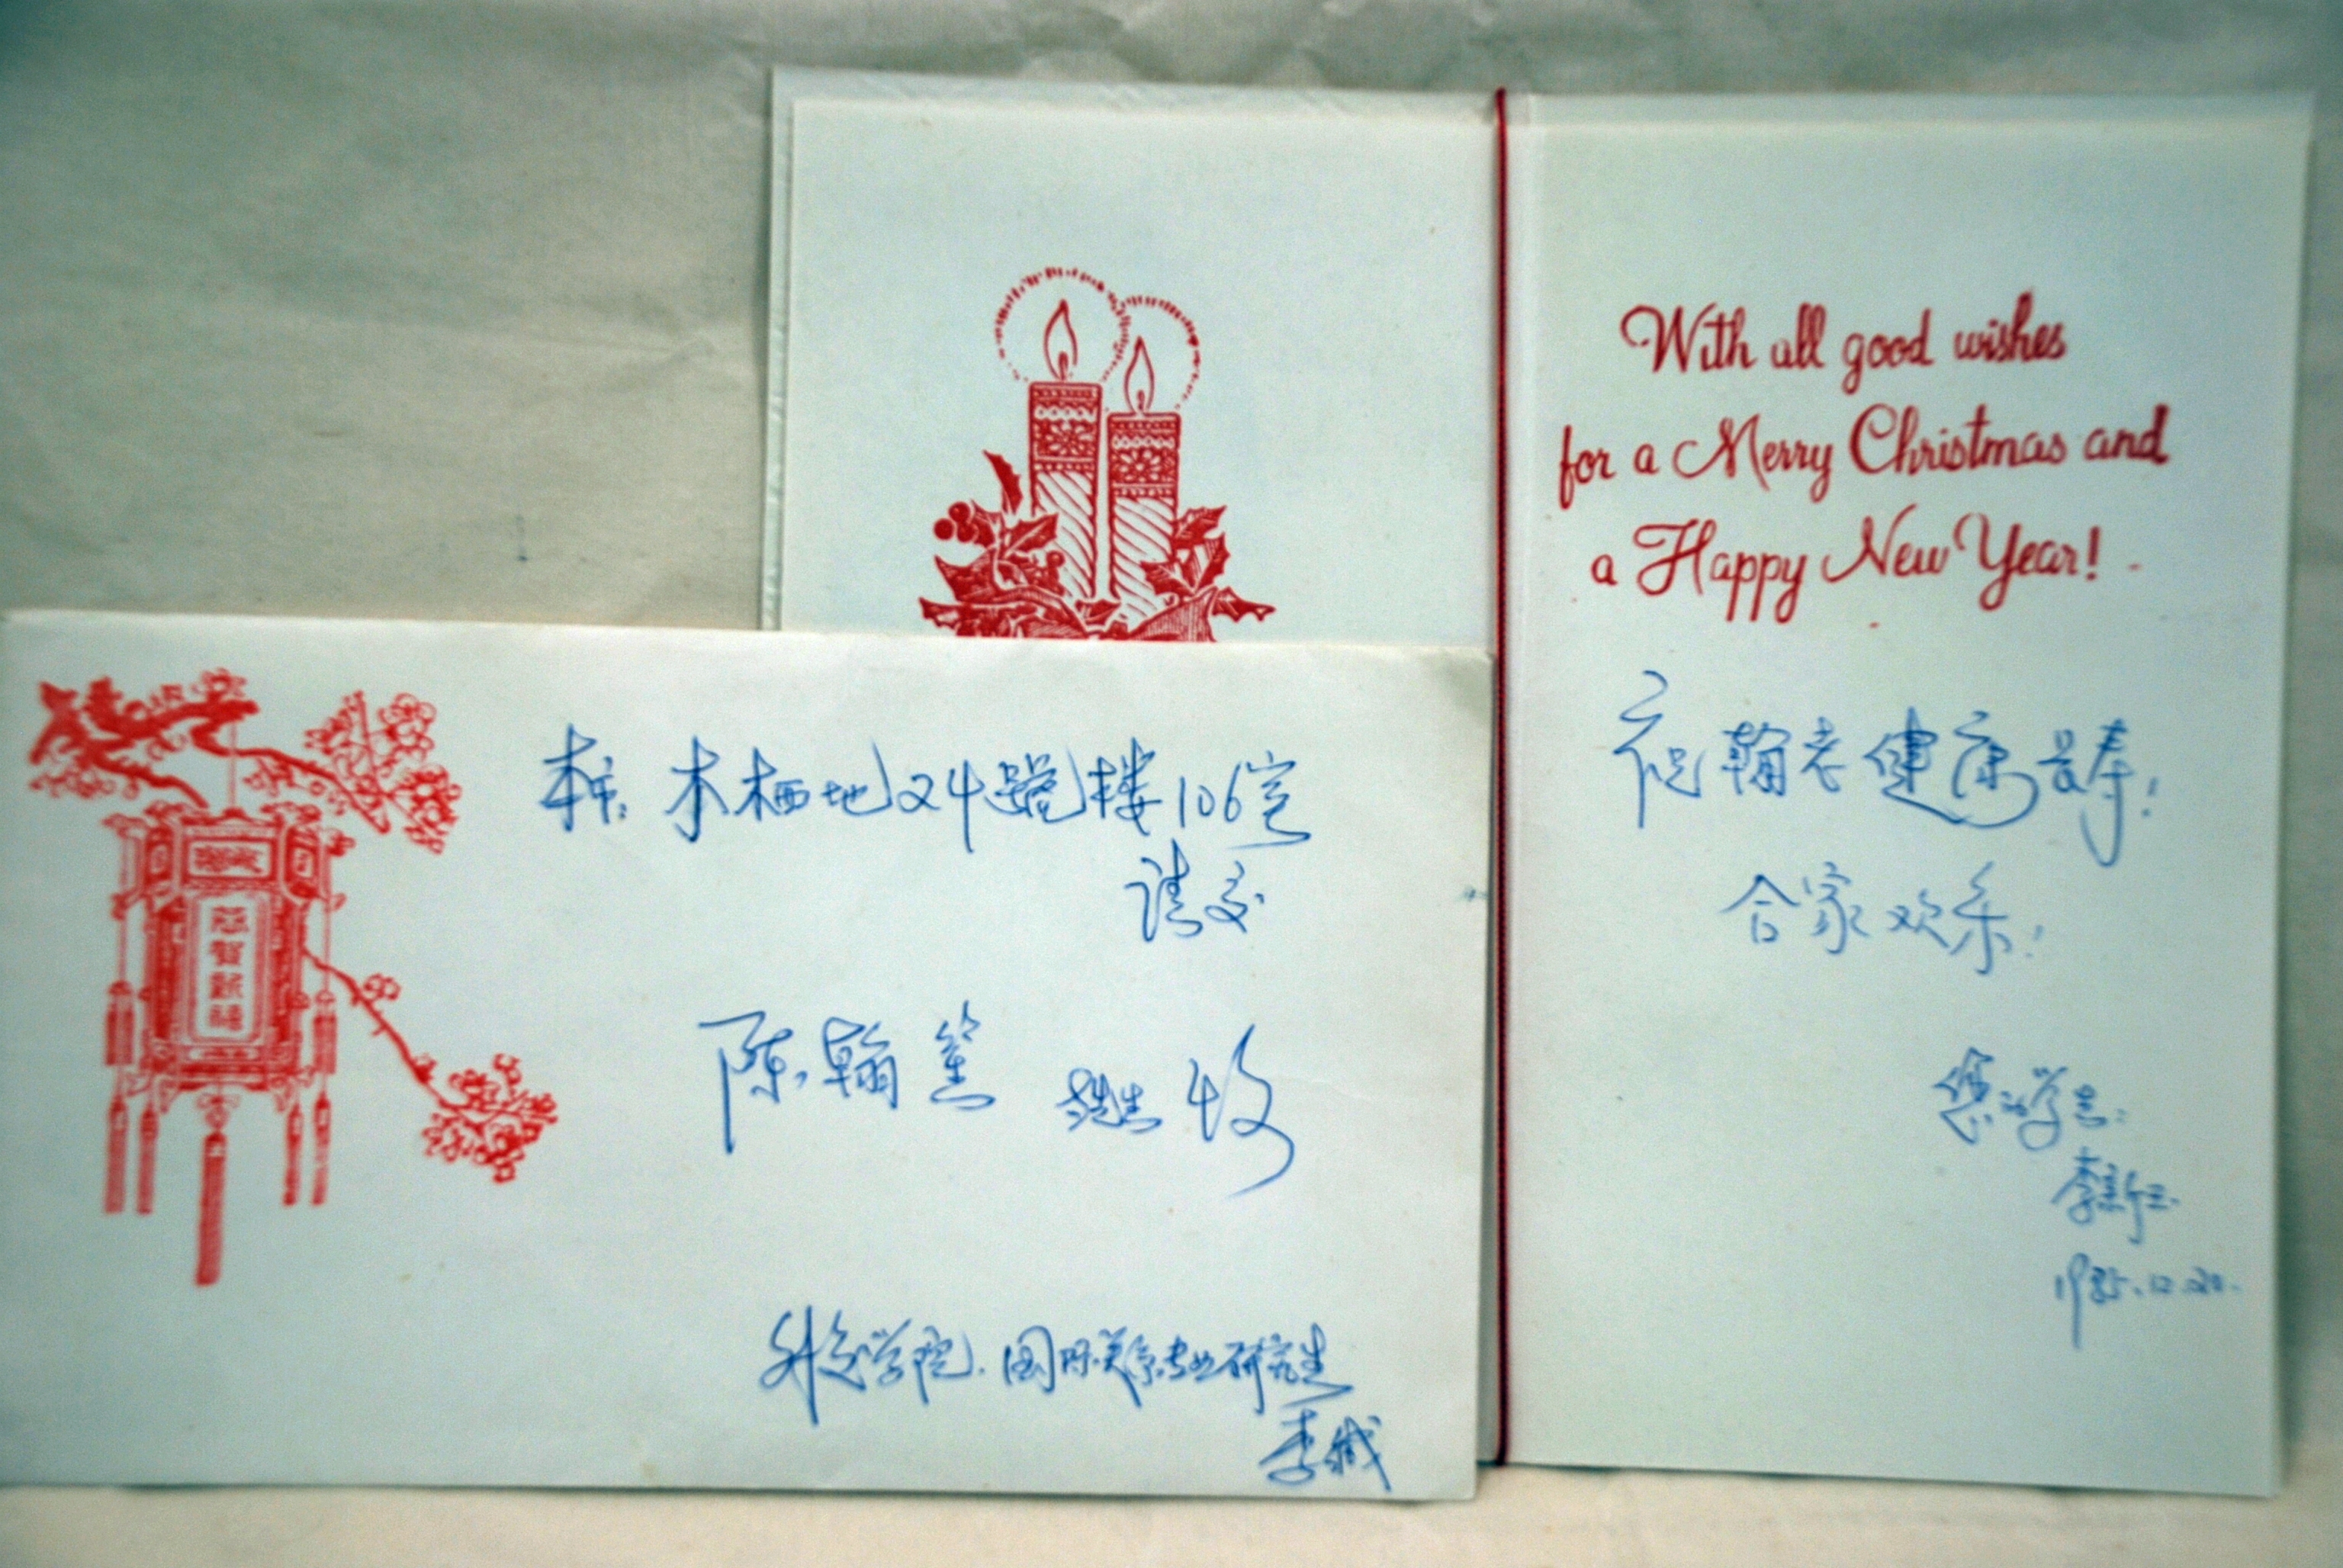 With all good wishes
for a Merry Christmas and
a Happy New Year!
祝翰老健康长寿!
合家欢乐!
您的学生:
李新玉
1985.12.20.
本市: 木樨地24号楼106室
请交
陈翰笙 先生 收
外交学院. 国际关系专业研究生
李缄
恭賀新禧